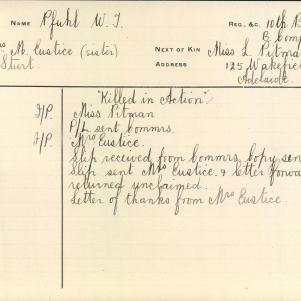 NAME Pfuhl W. J. REG. &C. 10th B
E comp
rs M. Eustice (sister) NEXT OF KIN Miss L. Pitman
Sturt. ADDRESS 125 Wakefie
Adelaide.
"Killed in Action"
I/P. Miss Pitman
P/L sent bommrs.
I/P. Mrs Eustice.
Slip received from bommrs, copy sen
Slip sent Mrs Eustice. & letter forwa
returned unclaimed.
Letter of thanks from Mrs Eustice.